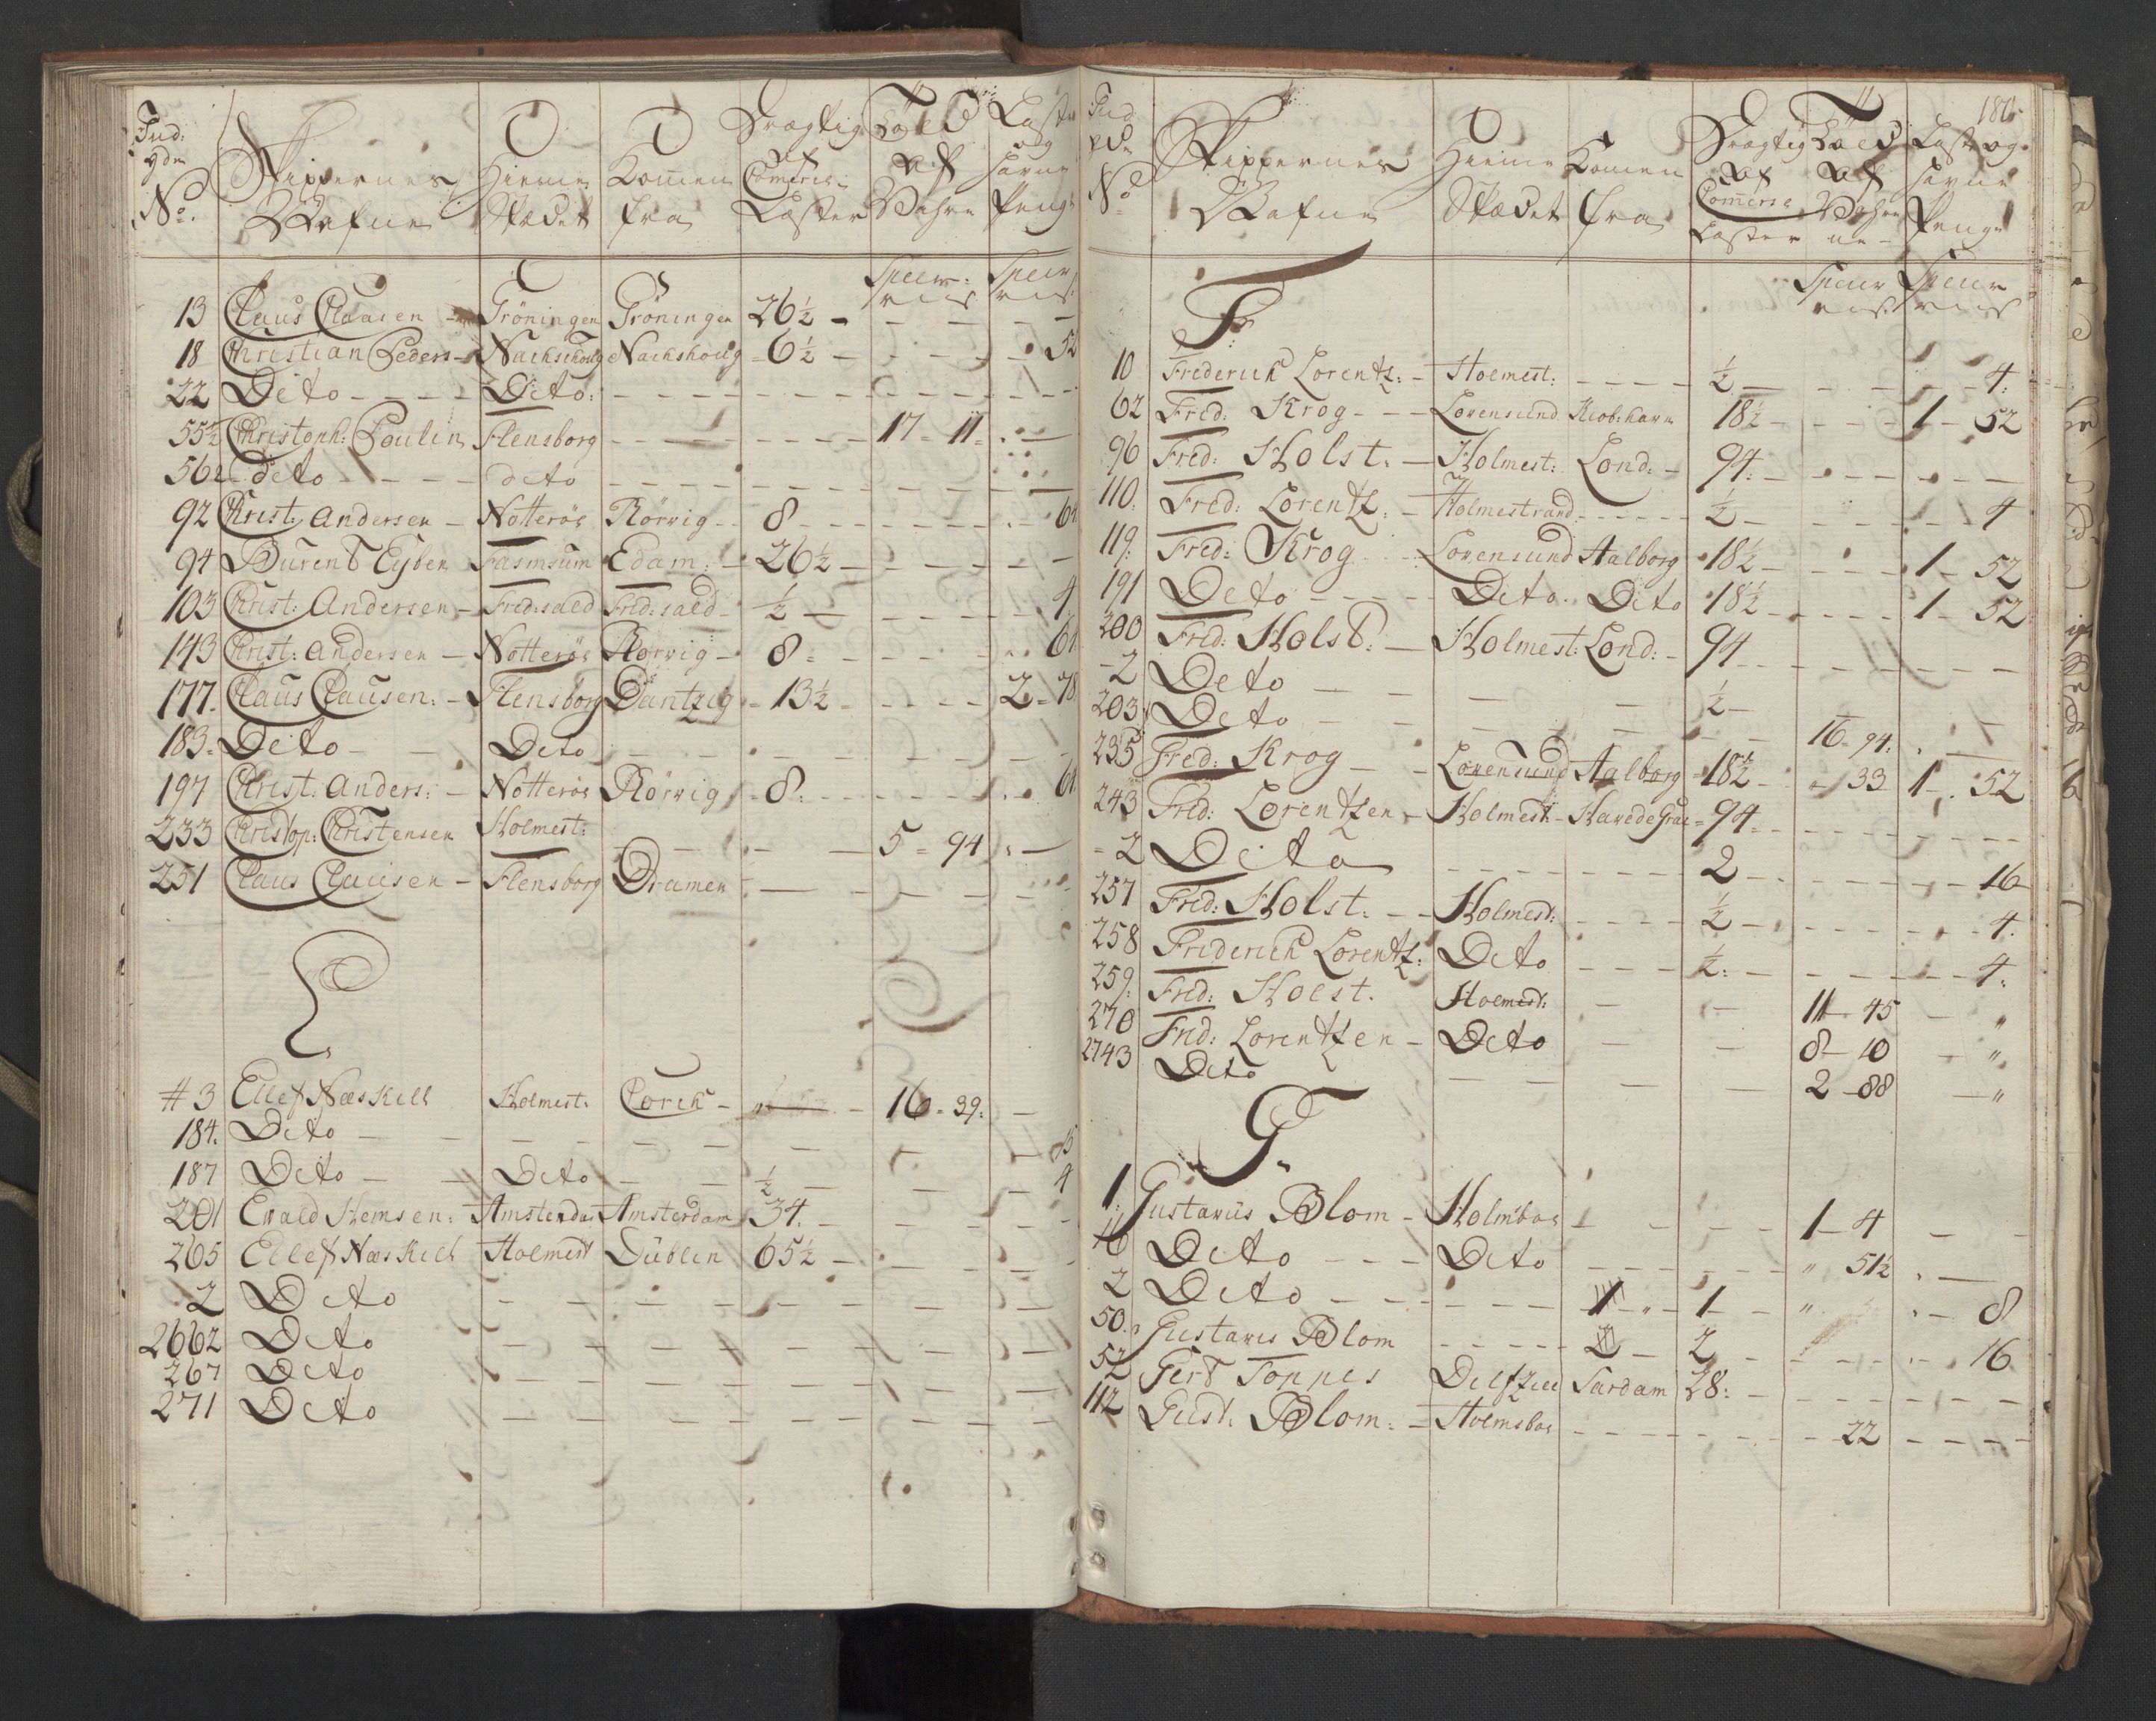 Ind:
gdn
No.
Skippernes
Nafne
Hiemme
Stædet
Komen
fra
Drægtig
af
Comerce
Læster
Told
af
Vahre
Læste
og
Havne
Penge
Specier
Specier
13 Claus Claasen Gröningen Gröningen 26½ - - - -
18 Christian Peders - Nackschoug Nackshoug - 6½ - - - - 52
22 Deto - - - - Deto: - - - -
55½ Christoph: Poulin Flensborg - - - - 17 - 11 - . -
562 deto - - - - deto - - - -
92 Christ: Andersen - Nötteröe Rörvig - - 8 - - - - 64
94 Burent Eyben Fasmsum Edam: - 26½ - - - -
103 Christ: Andersen - Fred:sald Fred:sald - ½ - - - - 4
143 Christ: Andersen - Nötteröe Rörvig - 8 = - - - - 64
177. Claus Clausen: - Flensborg Dantzig - 13½ - - - - 2 - 78
183 - Deto - - Deto - - - -
197 Christ: Anders: - Nötteröe Rörvig - 8: - - - - 64
233 Christop: Christensen Holmest: - - - 5 - 94 . -
251 Claus Clausen - Flensborg Dramen - - - -
E
# 3 Ellef Næskill Holmest: Corck - - 16 - 39: -
184. Deto - - - - - 15
187 Deto - - Deto - - ½ - - - 4
201 Evald Hemsen: Amsterdam Amsterdam 34. - - - -
265 Ellef Næskill Holmest Dublin 65½ - - - -
2 Deto - - - -
2662 Deto - - - -
267 Deto - - - -
271 Deto - - - -
Ind
gdn
No
Skippernes
Nafne
Hieme
Stædet
Komen
fra
Drægtig
af
Comerce
Læster
Told
af
Vahre
ne -
Læst og
Havne
Penge
Specier
Specier
F:
10 Frederich Lorentz: - Holmest: - - - - ½ - - - 4:
62 Fred: Krog - - - Lovensund Kiob:havn 18½ - - - 1 - 52
96 Fred: Holst. - Holmest: Lond: - 94: - - - -
110 Fred: Lorentz: - Holmestrand - - - - ½ - - - - 4
119: Fred: Krog Lovensund Aalborg 18½ - - - 1 - 52
191 Deto - - - - Deto. Deto 18½ - - - - 1 - 52
200 Fred: Holst. - Holmest: Lond: - 94 - - - -
- 2 Deto - - - - ½ -
203 Deto - - - - 16 - 94: . -
235 Fred: Krog - - Lovensund Aalborg - 18½ - - 33 1 - 52
243 Fred: Lorentzen - Holmest - HavedeGrae - 94 - - - -
- 2 Deto - - - - 2 - - - - 16
257 Fred: Holst. - - Holmest: - - - - ½ - - - - 4.
258 Friderich Lorentz: Deto - - - - ½: - - - - 4:
259: Fred: Holst. Holmest: - - 11 - 45 - "
270 Fred: Lorentzen - Deto - - 8 - 10 - "
2743 Deto - - - - 2 - 88 - "
G.
1. Gustavus Blom - Holmsboe - - - - 1 - 4 - -
16 Deto - - - Deto - - - - " 51½ . -
2 Deto - - - - 1 - " - 1 - " . - 8
50. Gustavus Blom - - - - 2 - 2 - - - - 16
52 Gert Tonnes Delfziel Sardam 28: - - - -
112 Gust: Blom: - Holmsboe - - - - 22 - - - -